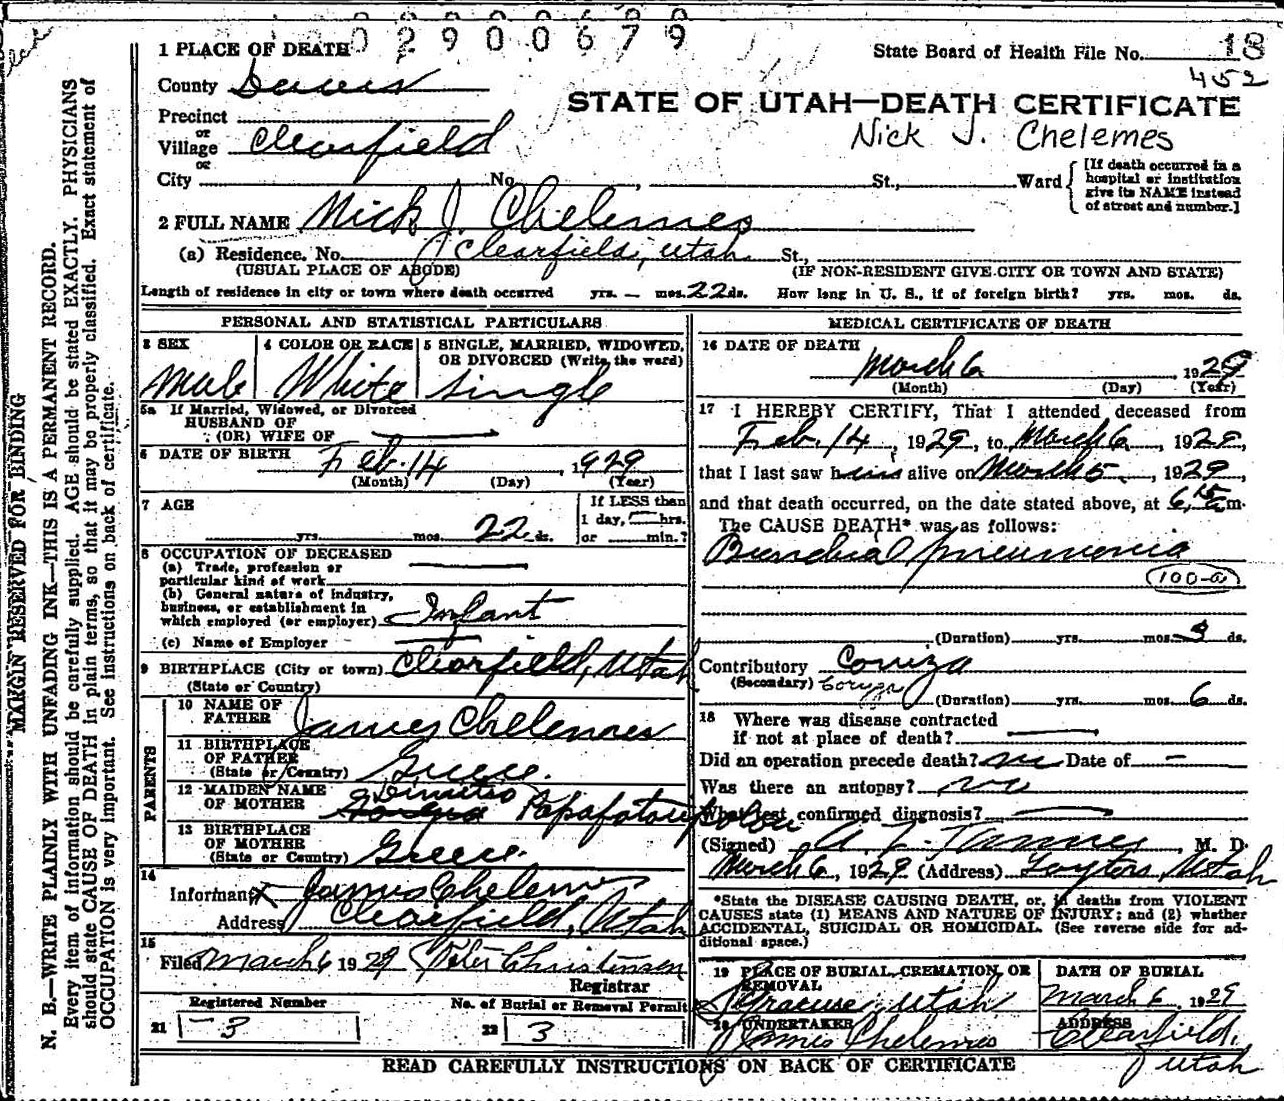 0 2 9 0 0 6 7 9
1 PLACE OF DEATH
State Board of Health File No. 18
452
County Davis
STATE OF UTAH—DEATH CERTIFICATE
Precinct
or
Village Clearfield
Nick J. Chelemes
or
City No. , St., Ward
[If death occurred in a hospital or institution give its NAME instead of street and number.]
2 FULL NAME Nick J. Chelemes
(a) Residence. No. Clearfield, Utah St.,
(USUAL PLACE OF ABODE) (IF NON-RESIDENT GIVE CITY OR TOWN AND STATE)
Length of residence in city or town where death occurred yrs. — mos. 22 ds. How long in U. S., if of foreign birth? yrs. mos. ds.
PERSONAL AND STATISTICAL PARTICULARS
3 SEX
Male
4 COLOR OR RACE
White
5 SINGLE, MARRIED, WIDOWED, OR DIVORCED (Write the word)
Single
5a If Married, Widowed, or Divorced
HUSBAND OF
(OR) WIFE OF
6 DATE OF BIRTH Feb. 14, 1929
(Month) (Day) (Year)
7 AGE
yrs. mos. 22 ds.
If LESS than
1 day, hrs.
or min.?
8 OCCUPATION OF DECEASED
(a) Trade, profession or
particular kind of work
(b) General nature of industry,
business, or establishment in
which employed (or employer) Infant
(c) Name of Employer
9 BIRTHPLACE (City or town) Clearfield, Utah
(State or Country)
PARENTS
10 NAME OF
FATHER James Chelemes
11 BIRTHPLACE
OF FATHER
(State or Country) Greece.
12 MAIDEN NAME
OF MOTHER
13 BIRTHPLACE
OF MOTHER
(State or Country) Greece.
14
Informant X James Chelemes
Address Clearfield, Utah
15
Filed March 6 1929 Peter Christensen
Registrar
Registered Number
21 3
No. of Burial or Removal Permit
22 3
MEDICAL CERTIFICATE OF DEATH
16 DATE OF DEATH
March 6, 1929
(Month) (Day) (Year)
17 I HEREBY CERTIFY, That I attended deceased from
Feb. 14, 1929, to March 6, 1929,
that I last saw him alive on March 5, 1929,
and that death occurred, on the date stated above, at 6,15 a m.
The CAUSE DEATH* was as follows:
Bronchial pneumonia
100-a
(Duration) yrs. mos. ds.
Contributory Coryza
(Secondary) Coryza
(Duration) yrs. mos. 6 ds.
18 Where was disease contracted
if not at place of death?
Did an operation precede death? no Date of —
Was there an autopsy? no
What test confirmed diagnosis?
(Signed) , M. D.
March 6, 1929 (Address) Layton, Utah
*State the DISEASE CAUSING DEATH, or, in deaths from VIOLENT
CAUSES state (1) MEANS AND NATURE OF INJURY; and (2) whether
ACCIDENTAL, SUICIDAL OR HOMICIDAL. (See reverse side for ad-
ditional space.)
19 PLACE OF BURIAL, CREMATION, OR
REMOVAL
Syracuse, Utah
DATE OF BURIAL
March 6, 1929
20 UNDERTAKER
James Chelemes
ADDRESS
Clearfield,
Utah
READ CAREFULLY INSTRUCTIONS ON BACK OF CERTIFICATE
MARGIN RESERVED FOR BINDING
N. B.—WRITE PLAINLY WITH UNFADING INK—THIS IS A PERMANENT RECORD.
Every item of information should be carefully supplied. AGE should be stated EXACTLY. PHYSICIANS
should state CAUSE OF DEATH in plain terms, so that it may be properly classified. Exact statement of
OCCUPATION is very important. See instructions on back of certificate.